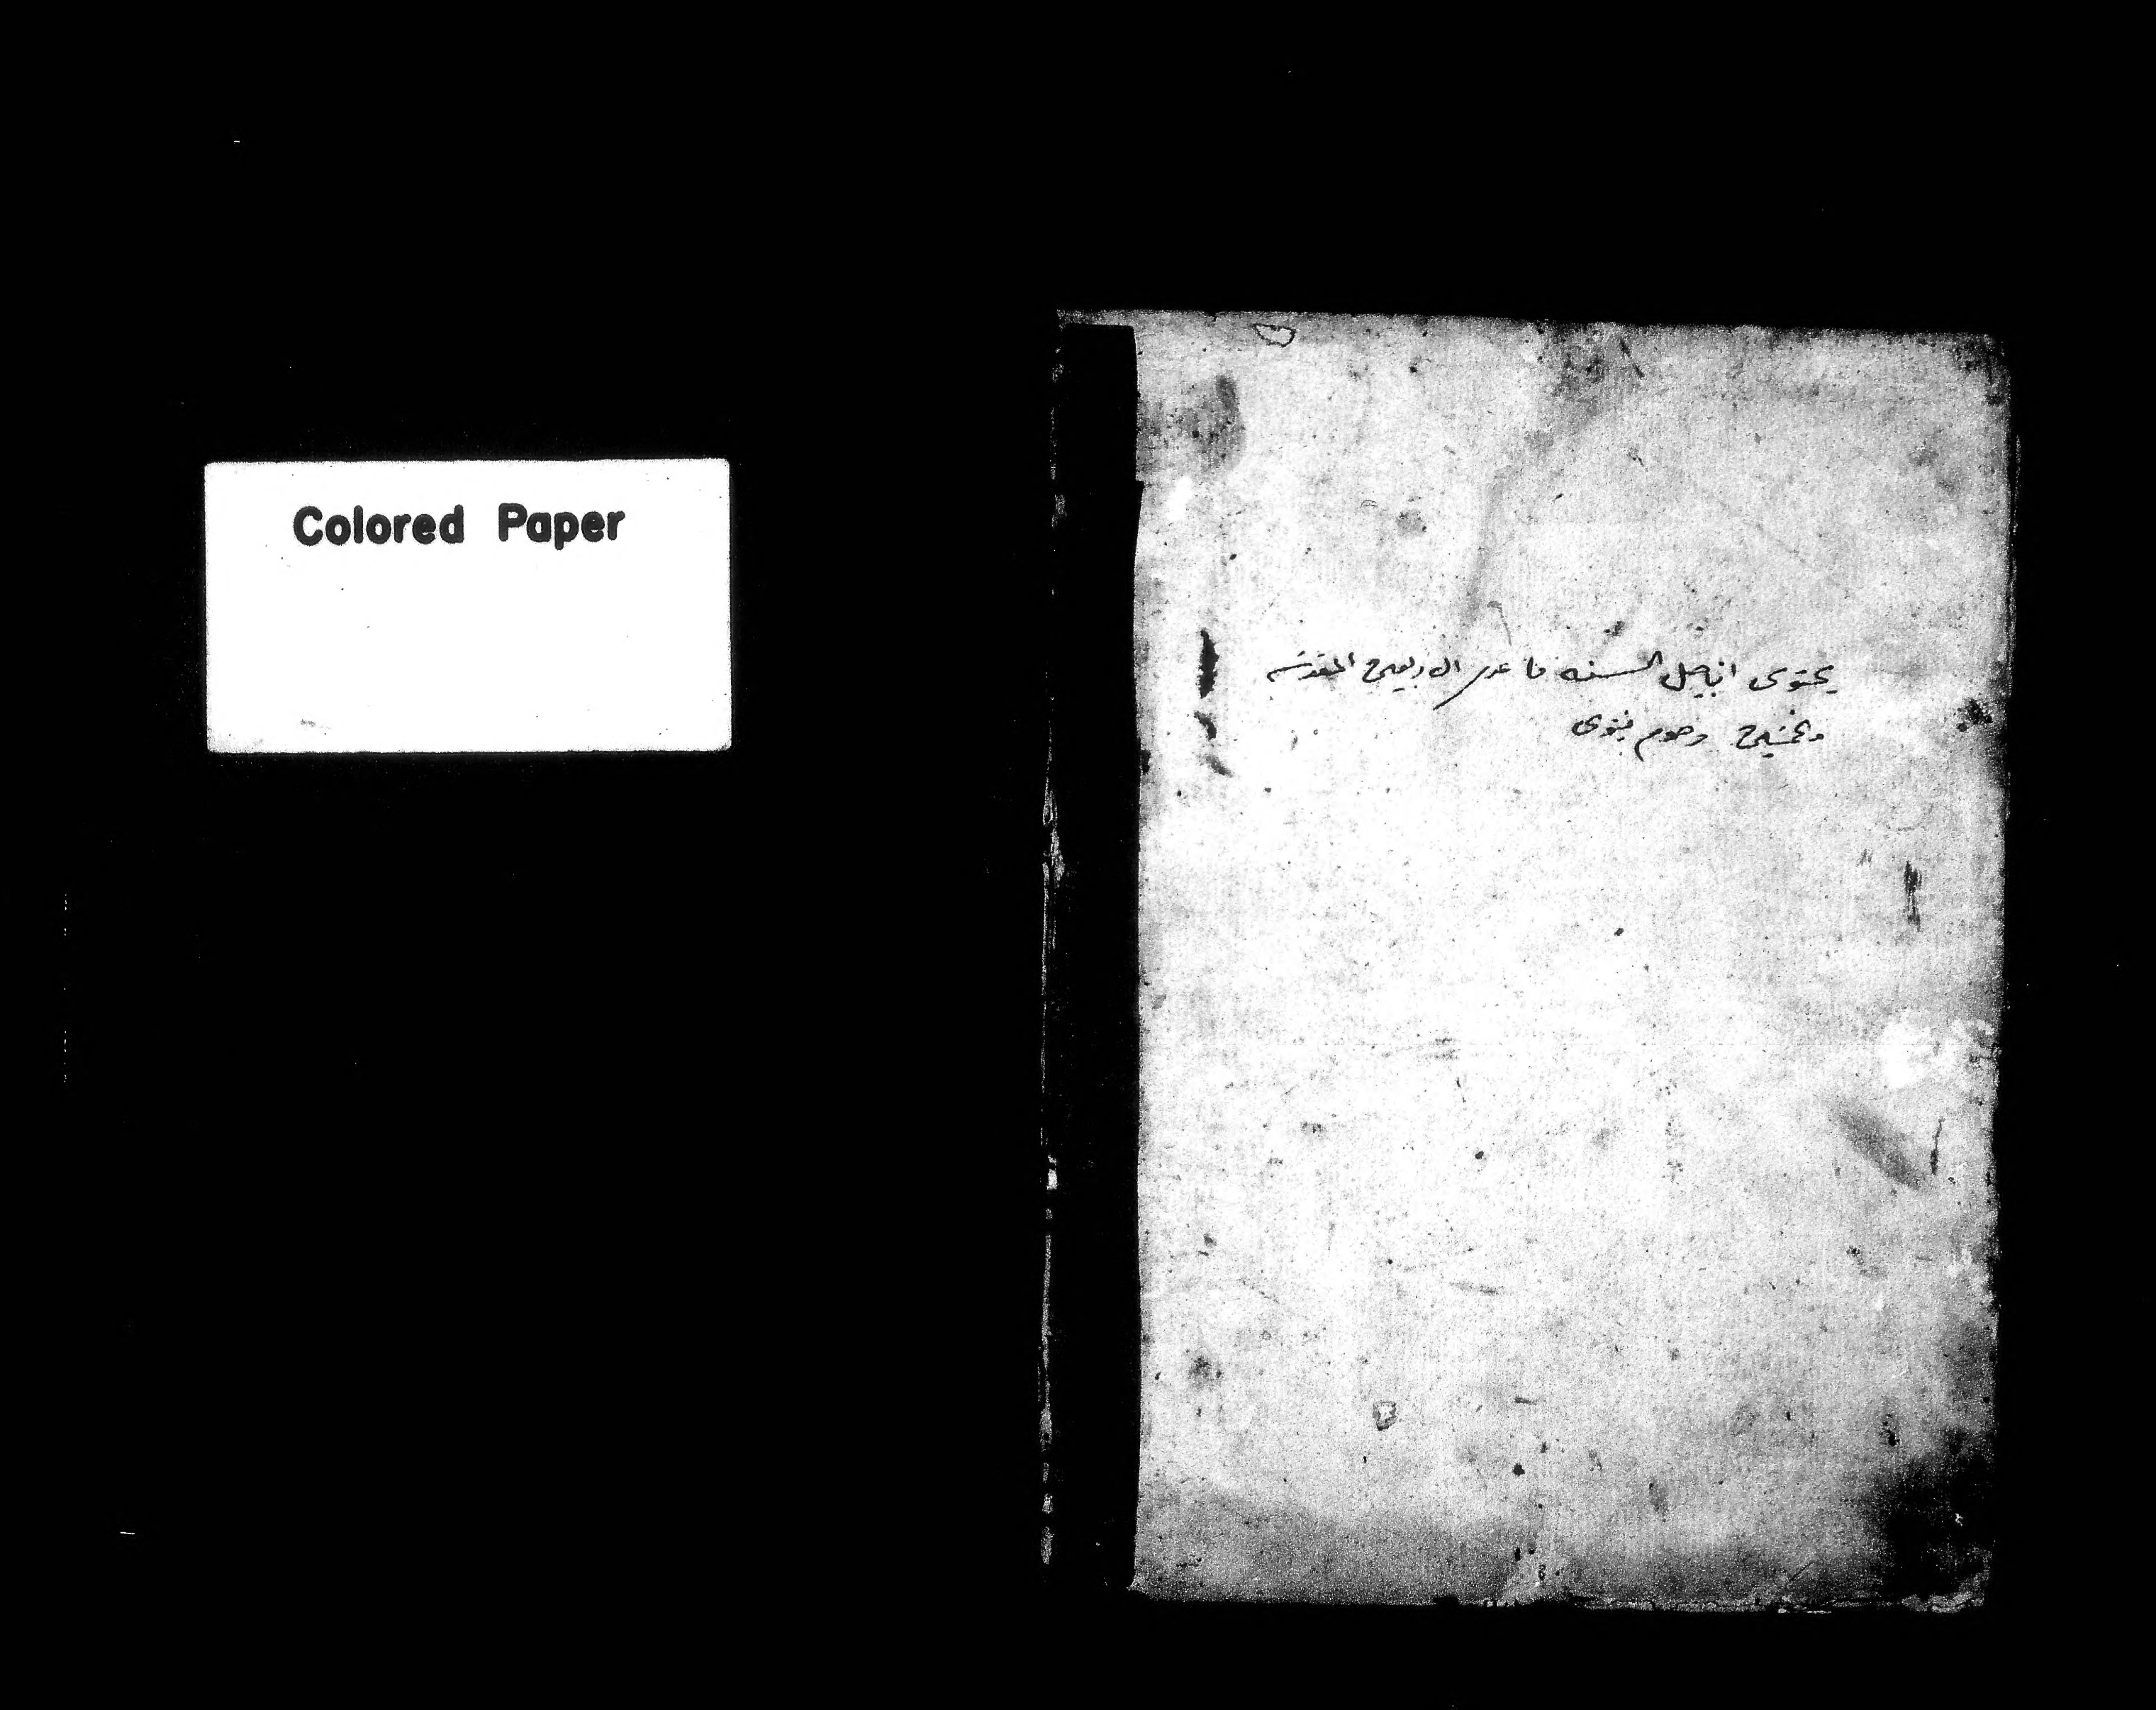 Colored Paper
يحتوى اناجيل السنه ما عدى الاربعين المقدسه
والخمسين وصوم نينوى